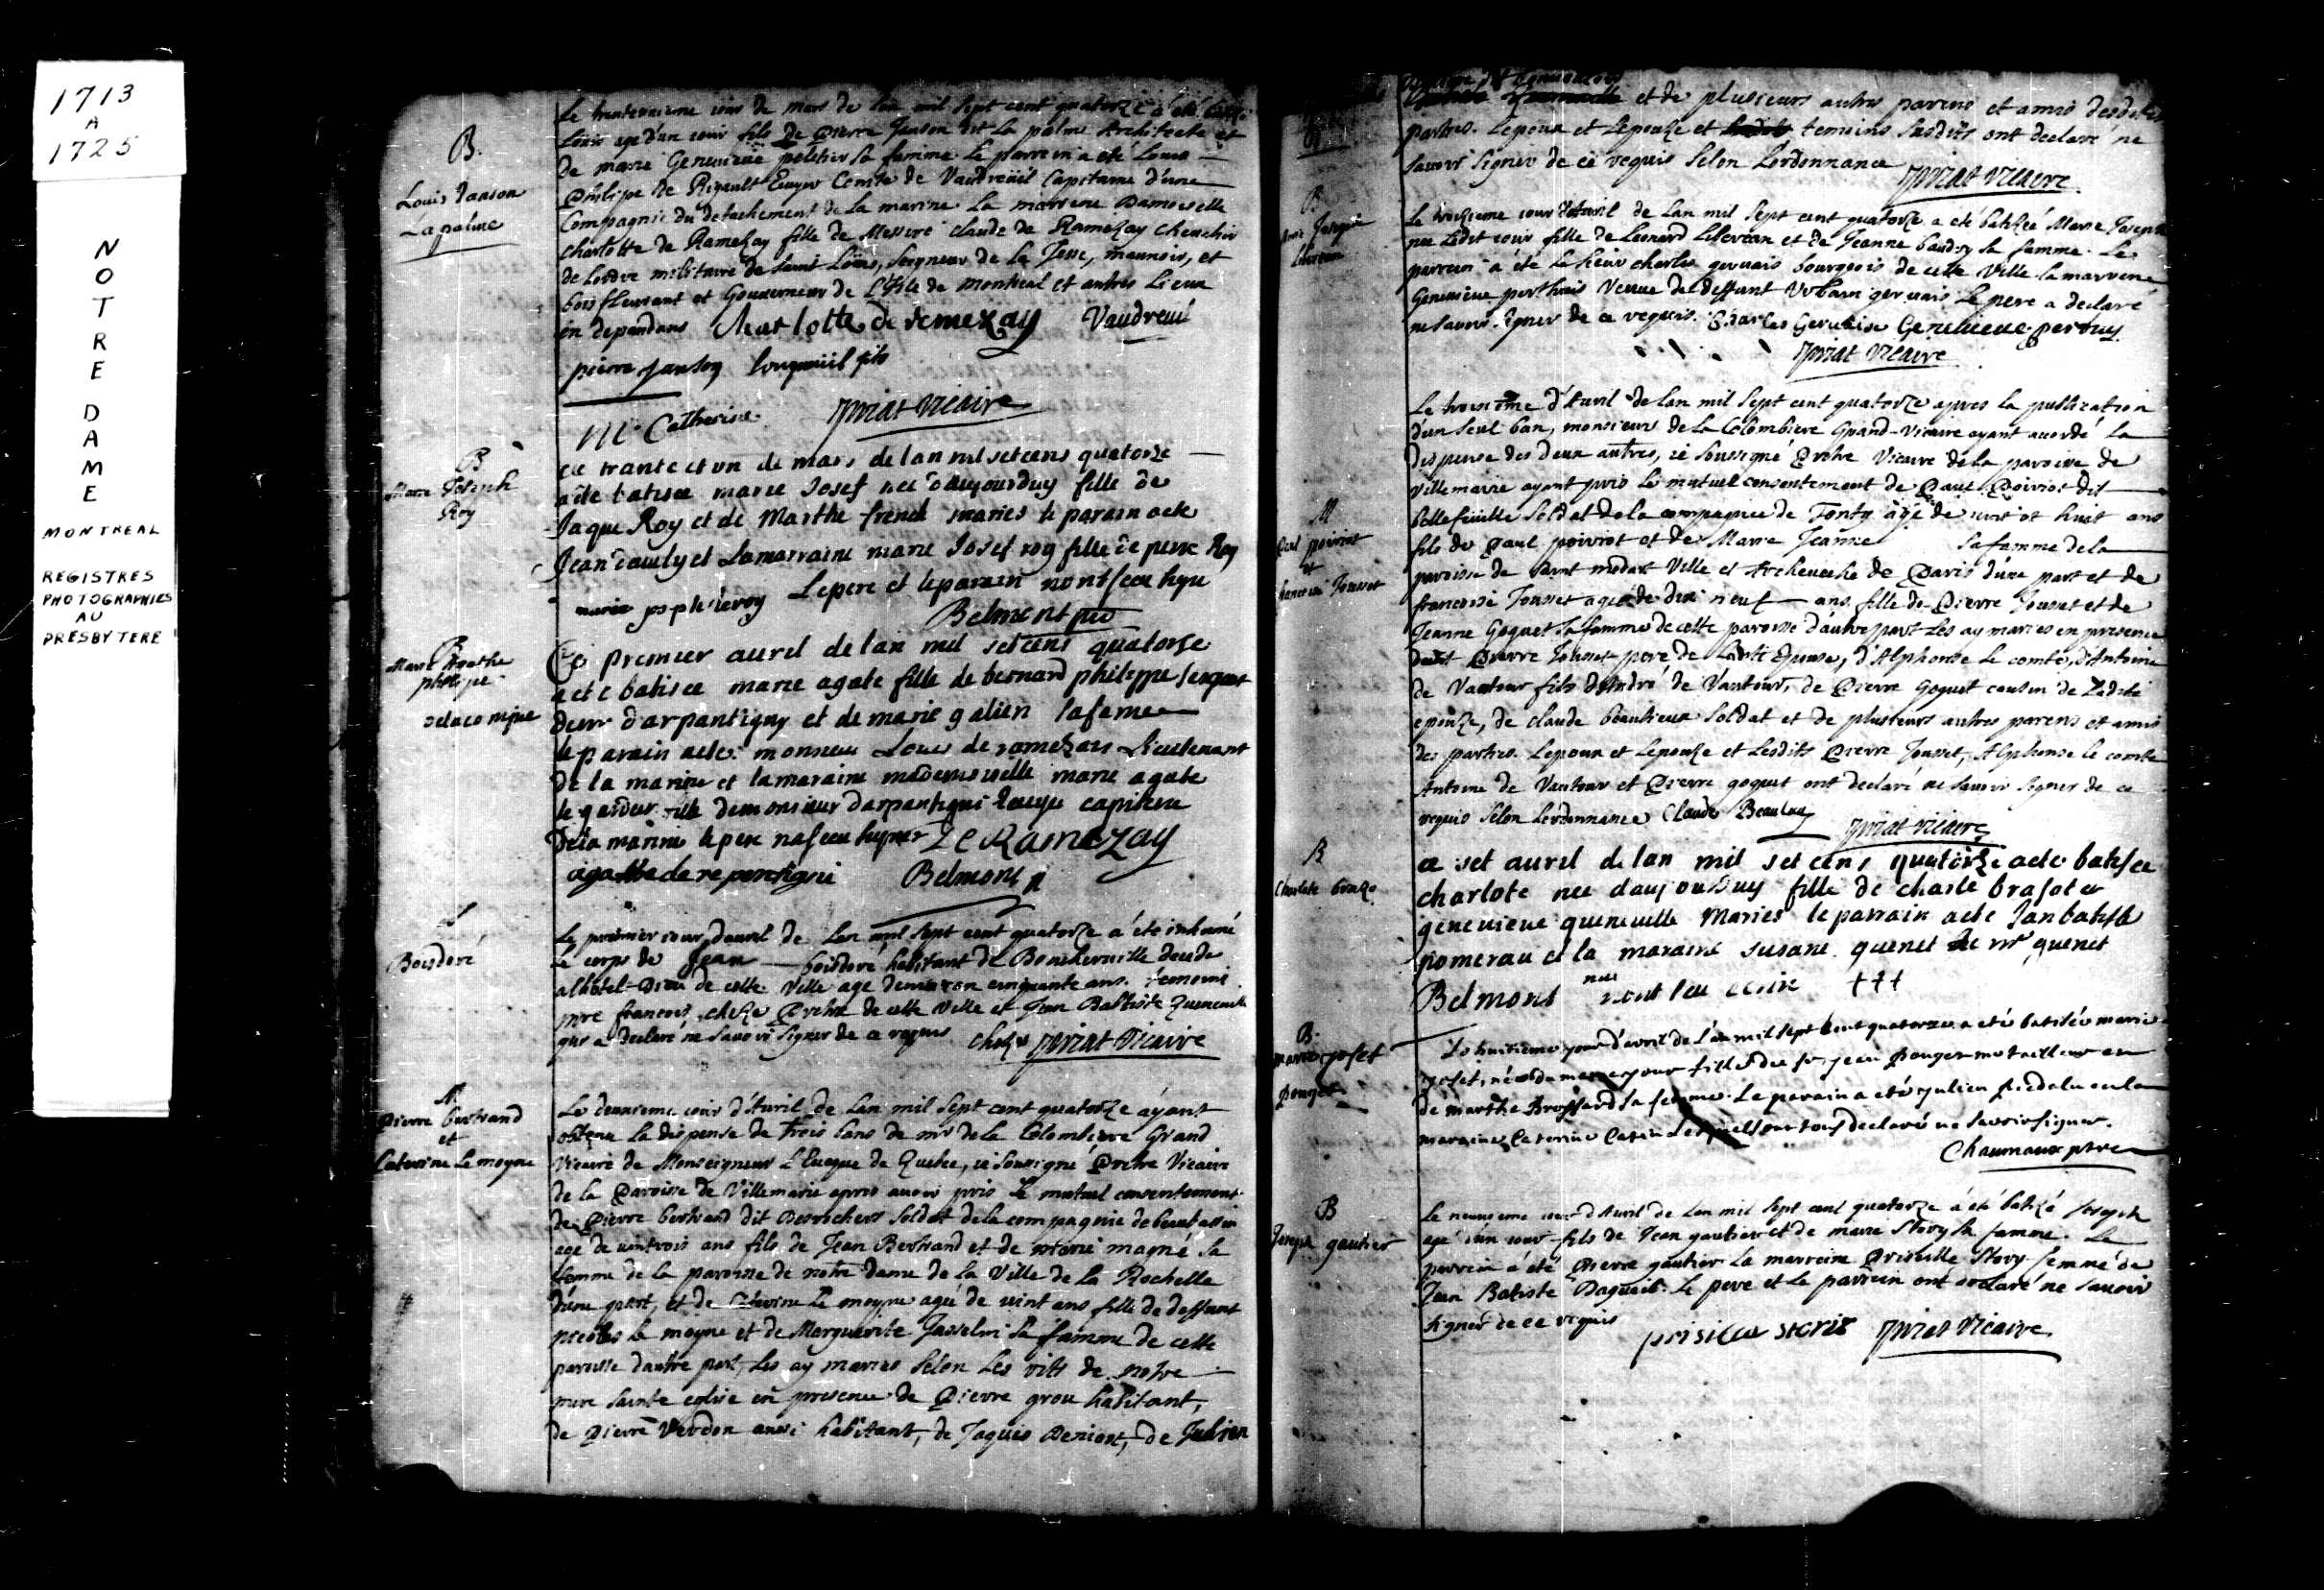 1713
A
1725
NOTRE DAME
MONTREAL
REGISTRES
PHOTOGRAPHIES
AU
PRESBYTERE
B.
Louis Janson
Lapalme
Le trenteunieme iour de mars de lan mil sept cent quatorze a eté batizé
Louis agé d'un iour fils de Pierre Janson dit La palme Architecte et
de marie Genevieve peletier sa famme. Le parrein a été Louis
Philipe de Rigault Ecuyer Comte de Vaudreüil Capitaine d'une
Compagnie du detachement de La marine. La marreine Damoiselle
Charlotte de Ramezay fille de Messire claude de Ramezay chevalier
de Lordre militaire de saint Loüis, Seigneur de La Jesse, monnoir, et
bois fleurant et Gouverneur de L'Isle de Montreal et autres Lieux
en dependans Charlotte de remezay Vaudreuil
pierre janson longueuil fils
Mr Catherine Priat Vicaire
B
Marie Joseph
Roy
ce trante et un de mars de lan mil set cens quatorze
a ete batisee marie Josef nee daujourduy fille de
Jaque Roy et de Marthe french maries le parain a ete
Jean dauly et La marraine marie Josef roy fille de pierre Roy
marie josephe leroy Le pere et le parain nont sceu signer
Belmont ptre
B
Marie Agathe
philipe
de la compie
Ce premier avril de lan mil set cens quatorze
a ete batisee marie agate fille de bernard philippe sergent
de mr darpantigny et de marie galien sa fame
le parain a ete monsieur Louis de ramezais Lieutenant
de la marine et la maraine mademoiselle marie agate
le gardeur fille de monsieur darpantigni ecuyer capitaine
de la marine le pere na sceu signer De Ramezay
agathe de repentigni Belmont p
S
Boisdoré
Le premier iour davril de Lan mil sept cent quatorze a été inhumé
Le corps de Jean boisdoré habitant de Boucherville decedé
a lhotel-Dieu de cette Ville agé denviron cinquante ans. temoins
mre francois cheze Prêtre de cette Ville et Jean Baptiste Queneville
qui a declaré ne savoir signer de ce requis cheze Priat Vicaire
M
Pierre bertrand
et
Caterine Le moyne
Le deuxieme iour d'Avril de Lan mil sept cent quatorze ayant
obtenu La dispense de trois bans de mr de la Colombiere Grand
Vicaire de Monseigneur L'Eveque de Quebec, ie soussigné Prêtre Vicaire
de la Paroisse de Villemarie apres avoir pris Le mutuel consentement
de Pierre bertrand dit Desrochers soldat de la compagnie de beaubassin
agé de vintrois ans fils de Jean Bertrand et de Marie magné sa
famme de la paroisse de notre dame de la Ville de la Rochelle
d'une part, et de Caterine Le moyne agée de vint ans fille de deffunt
Nicolas Le moyne et de Marguerite Jasselin sa famme de cette
paroisse dautre part, Les ay mariez selon Les rits de notre
mere sainte eglise en presence de Pierre grou habitant,
de Pierre Verdon aussi habitant, de Jaques Deniort, de Julien
et de plusieurs autres parens et amis desdites
parties. Lepoux et Lepouze et temoins susdits ont declaré ne
savoir signer de ce requis selon Lordonnance Priat Vicaire
B
Marie Josephe
Le troizieme iour d'Avril de Lan mil sept cent quatorze a eté batizée Marie Josephe
née Ledit iour fille de Leonard et de Jeanne baudry sa famme. Le
parrein a été Le sieur charles gervais bourgeois de cette Ville. la marreine
Genevieve perthuis Veuve de deffunt Urbain gervais Le pere a declaré
ne savoir signer de ce requis. Charles Gervaise Genevieve pertuis
Priat Vicaire
M
Paul poiriot
et
francoise Jousset
Le troisieme d'Avril de lan mil sept cent quatorze apres la publication
d'un seul ban, monsieur de La Colombiere Grand-Vicaire ayant accordé La
dispense des deux autres, ie soussigné Prêtre Vicaire de la paroisse de
Villemarie ayant pris Le mutuel consentement de Paul Poiriot dit
bellefeüille soldat de la compagnie de Tonty agé de vint et huit ans
fils de Paul poiriot et de Marie Jeanne sa famme de la
paroisse de saint medart Ville et Archeveché de Paris d'une part et de
francoise Jousset agée de dix neuf ans. fille de Pierre Jousset et de
Jeanne Goguet sa famme de cette paroisse d'autre part Les ay mariez en presence
dudit Pierre Jousset pere de Ladite Epouse, d'Alphonse Le comte, d'Antoine
de Vantour fils d'André de Vantour, de Pierre Goguet cousin de Ladite
epouze, de claude beaulieux soldat et de plusieurs autres parens et amis
des parties. Lepoux et Lepouze et Lesdits Pierre Jousset, Alphonse le comte
Antoine de Vantour et Pierre goguet ont declaré ne savoir signer de ce
requis selon Lordonnance Claude Beaulieu Priat Vicaire
B
Charlote brazo
ce set avril de lan mil set cens quatorze a ete batisee
charlote nee daujourduy fille de charle brasot et
genevieve quenneville Maries le parrain a ete Jan batiste
pomerau et la maraine susane quenet de mr quenet
Belmont nont sceu ecrire +++
B.
marie josef
Pouget
Le huitieme jour d'avril de l'an mil sept cent quatorze a eté batisée marie
josef, née du mesme jour fille de jean Pouget metailleur et
de marthe Brossard sa femme. Le parain a eté julien piedalu et la
maraine Caterine Lesquels ont tous declaré ne savoir signer.
Chaumaux ptre
B
Joseph gautier
Le neuvieme iour d'Avril de Lan mil sept cent quatorze a été batizé Joseph
agé d'un iour fils de Jean gautier et de marie Story sa famme. Le
parrein a été Pierre gautier La marreine Priscille Story femme de
Jean Batiste Dagueil. Le pere et Le parrein ont declaré ne savoir
signer de ce requis prisilea storis Priat Vicaire